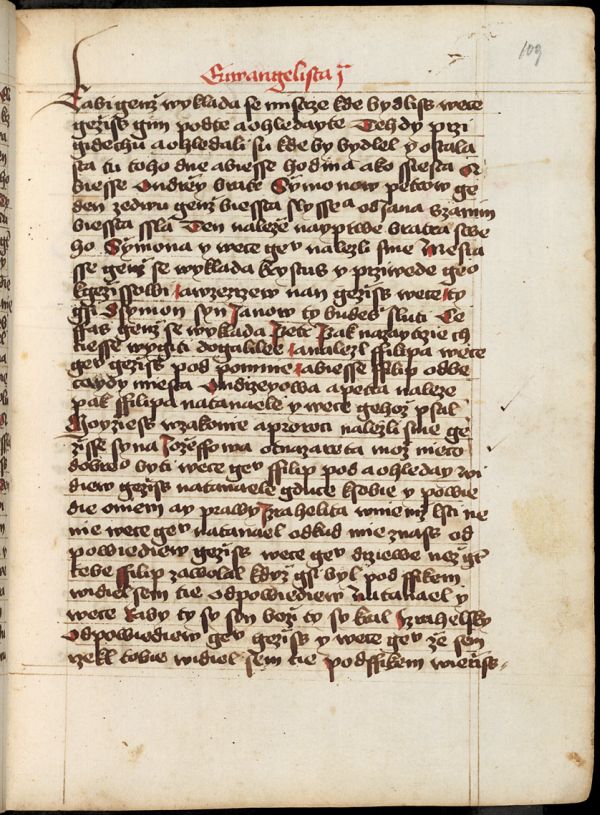 109
Euwangelista j
Rabi genz wyklada se mistrze kde bydliss wece
geziss gim podte a ohledayte Tehdy przi
gidechu a ohledali su kde by bydlel y ostala
sta tu toho dne a biesse hodina ako ssiesta A
biesse Ondrzey bratr Symonow petrow ge
den ze dwu genz biessta slyssela od jana a za nim
biessta ssla Ten naleze nayprwe bratra swe
ho Symona y wece gev nalezli sme Mesia
sse genz se wyklada krystus y prziwede geo
k gezissowi A wzezrzew nan geziss wece ty
gsi Symon syn Janow ty budes sluti Ce
ffas genz se wyklada Petr Pak nazaytrzie ch
tiesse wygiti do galilee a nalezl ffilipa y wece
gev geziss pod po mnie A biesse ffilip od be
tsaydy miesta Ondrzeyowa a petra naleze
pak ffilipa natanaele y wece gehoz psal
Moyziess w zakonie a proroci nalezli sme ge
zisse syna Jozeffowa ot nazareta moz nieco
dobreo byti wece gev ffilip pod a ohleday wi
diew geziss natanaele gduce k sobie y powie
die o niem ay prawy Izrahelita w niemz lsti ne
nie wece gev natanael odkud mie znass od
powiediew geziss wece gev drziewe nez gt
tebe ffilip zawolal kdyz gsi byl pod ffikem
widiel sem tie odpowiediew Natanael y
wece Raby ty sy syn bozi ty sy kral Izrahelsky
Odpowiediew gev geziss y wece gev ze sem
rzekl tobie widiel sem tie pod ffikem wierziss